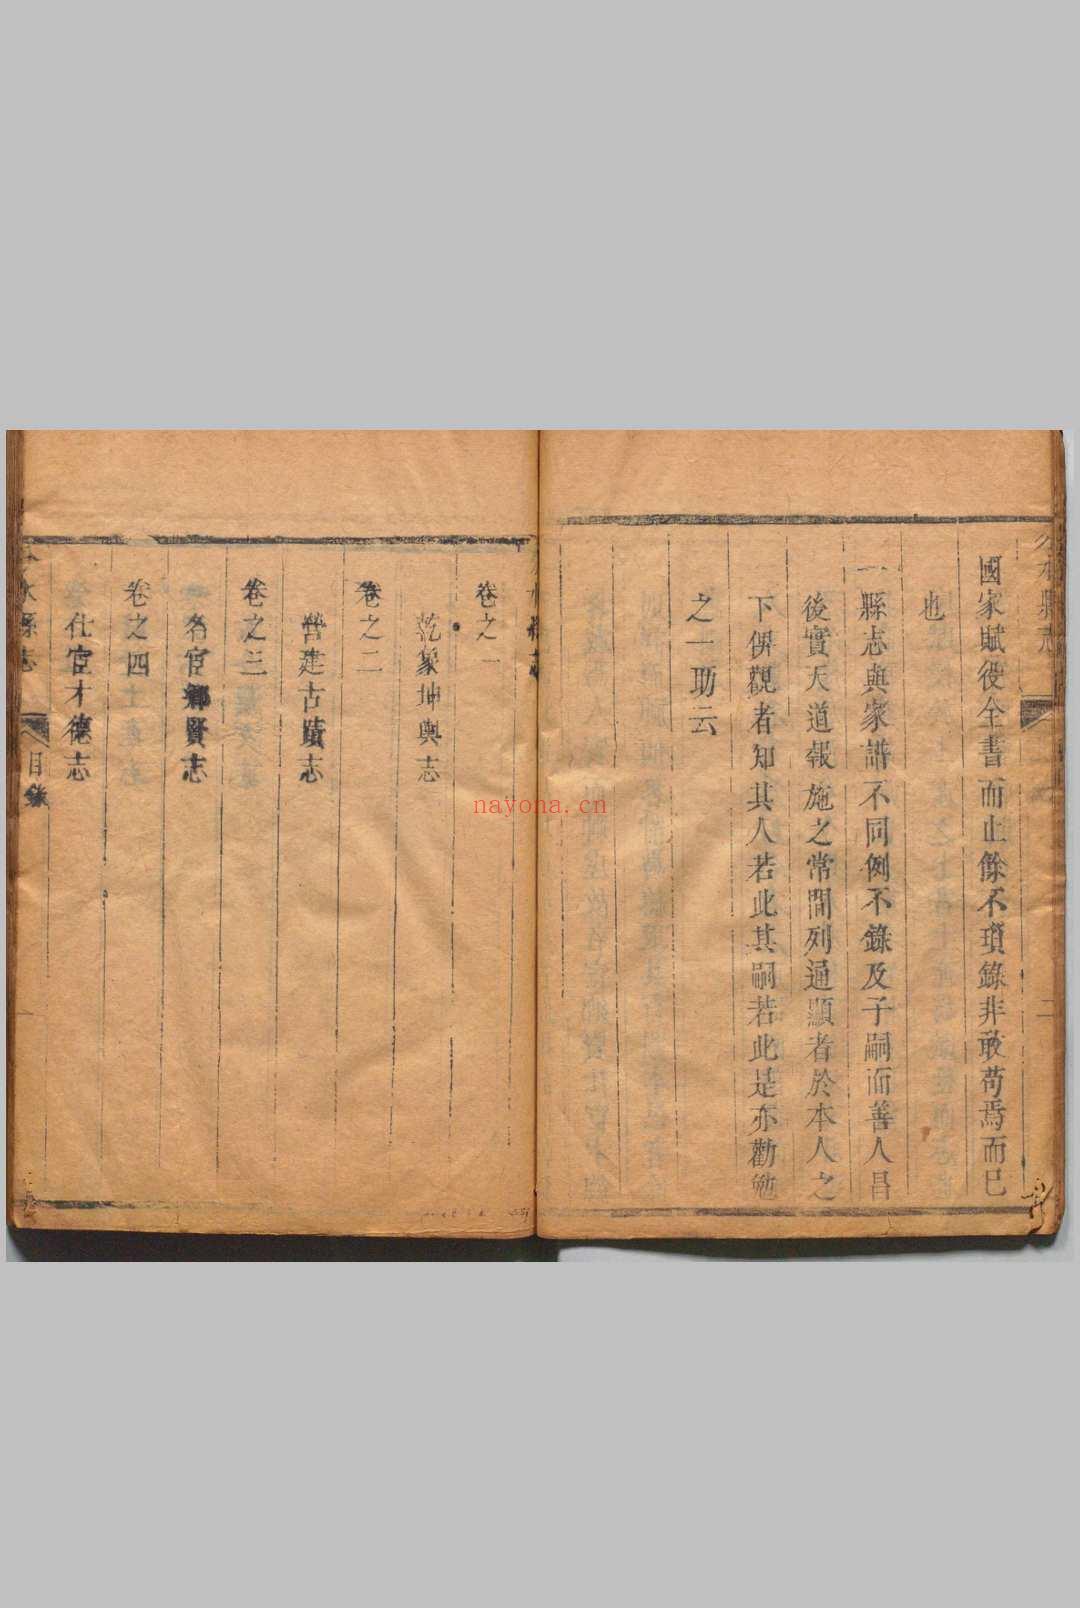 國家賦役全書而止餘不瑣錄非敢苟焉而已
也
一縣志與家譜不同例不錄及子嗣而善人昌
後實天道報施之常間列通顯者於本人之
下俾觀者知其人若此其嗣若此是亦勸勉
之一助云
二
卷之一
乾象坤輿志
卷之二
營建古蹟志
卷之三
名宦鄉賢志
卷之四
仕宦才德志
水縣志
目錄
nayona.cn